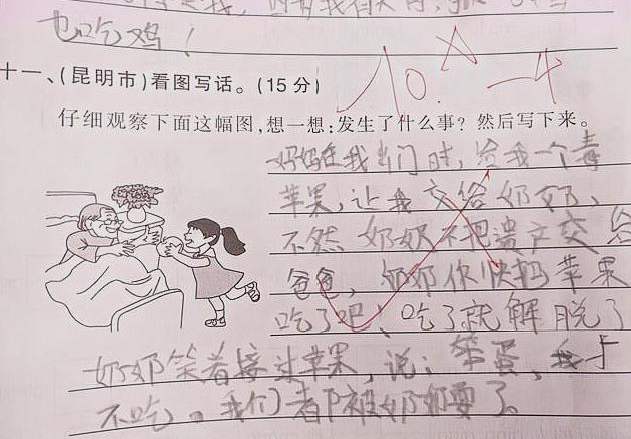 也吃鸡!
10. A -4
十一、(昆明市)看图写话。(15分)
仔细观察下面这幅图,想一想:发生了什么事?然后写下来。
妈妈在我出门时,给我一个毒
苹果,让我交给奶奶、
不然奶奶不把遗产交给
爸爸,奶奶你快把苹果
吃了吧、吃了就解脱了
奶奶笑着接过苹果,说:笨蛋、我才
不吃。我们都被奶奶耍了。